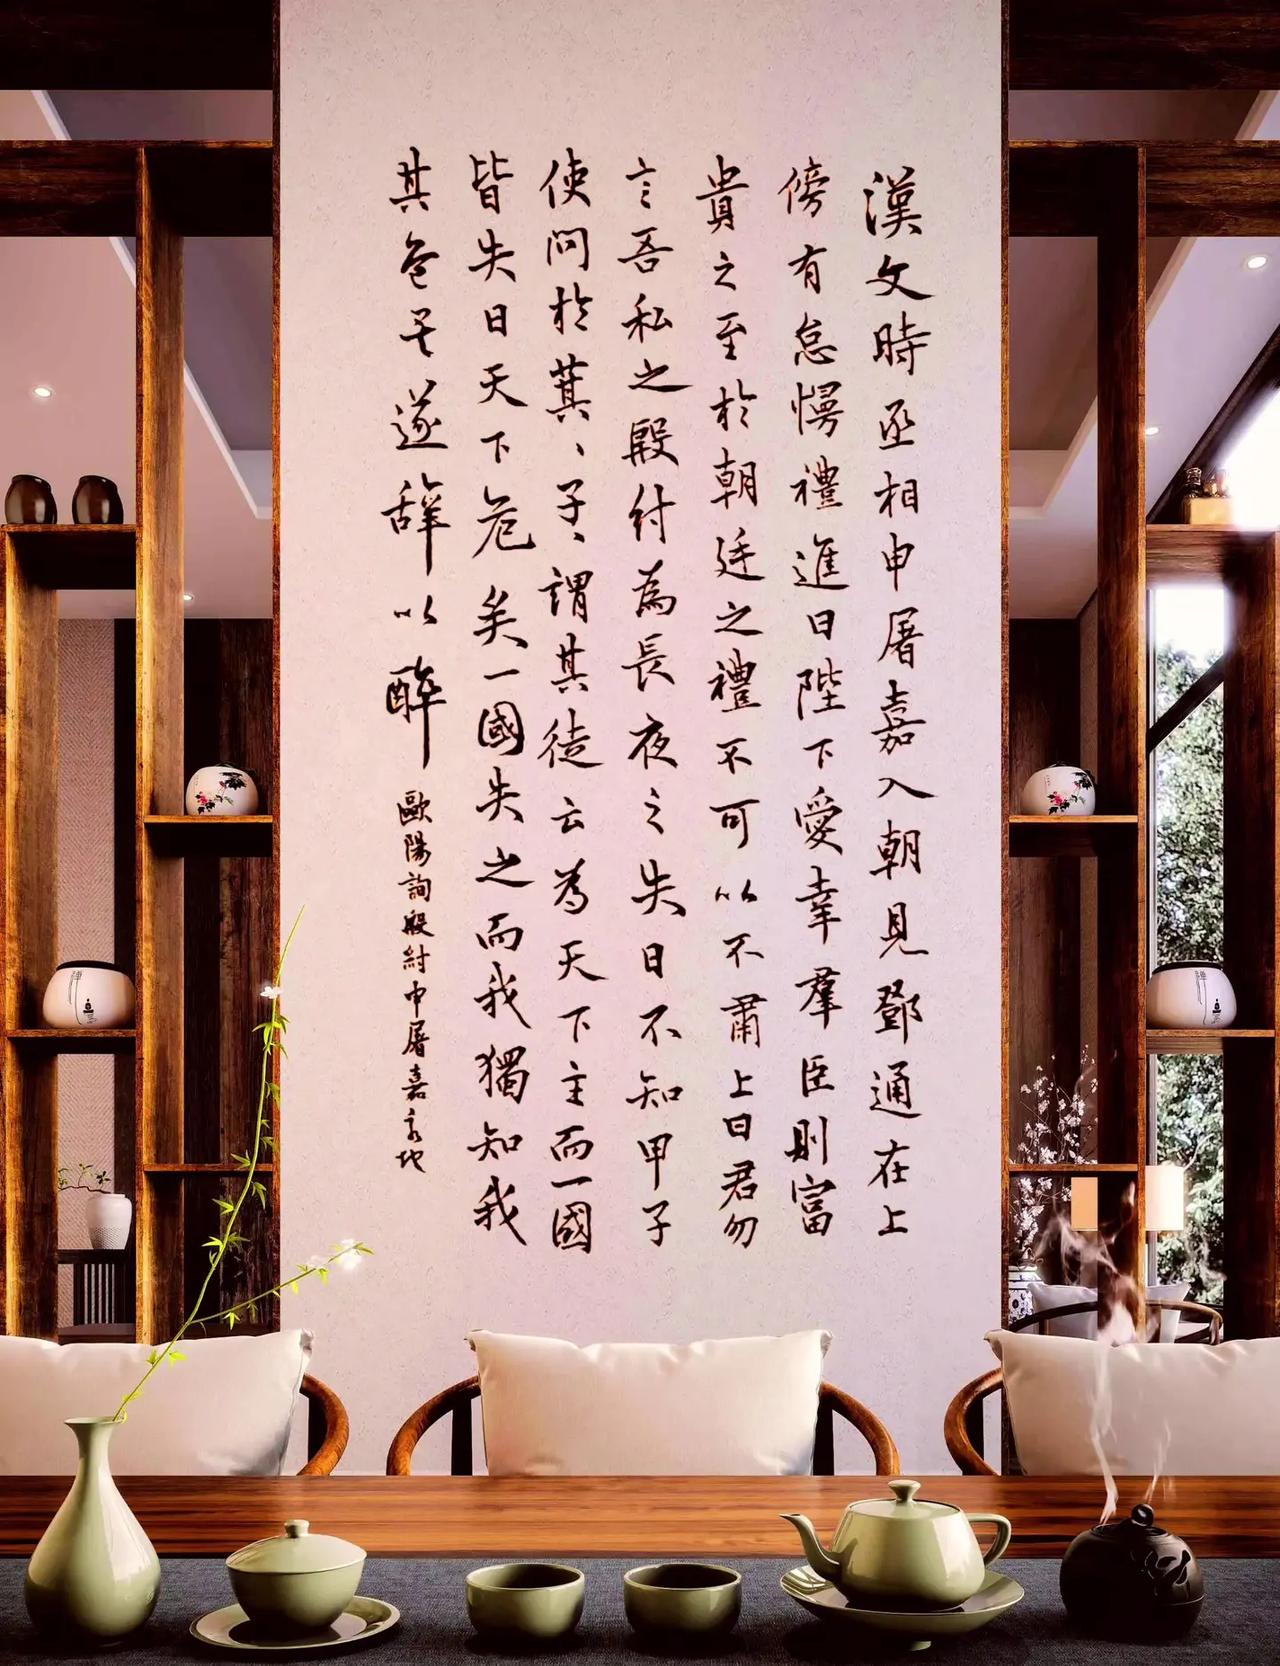 漢文時丞相申屠嘉入朝見鄧通在上
傍有怠慢禮進曰陛下愛幸羣臣則富
貴之至於朝廷之禮不可以不肅上曰君勿
言吾私之殷紂為長夜之失日不知甲子
使問於萁、子、謂其徒云為天下主而一國
皆失日天下危矣一國失之而我獨知我
其危矣遂辭以醉
歐陽詢殷紂申屠嘉